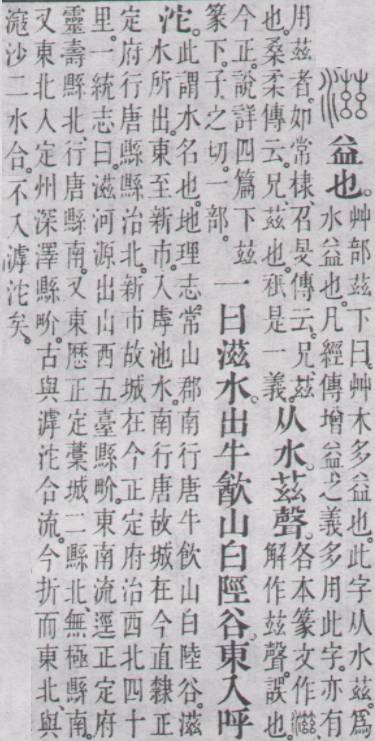 益也。
艸部茲下曰。艸木多益也。此字从水茲。爲
水益也。凡經傳增益之義多用此字。亦有
用茲者。如常棣、召旻傳云兄、茲
也。桑柔傳云。兄、茲也。祇是一義。
从水茲聲。
各本篆文作
解作茲聲。誤也。
今正。說詳四篇下茲
篆下。子之切。一部。
一曰滋水。出牛㱃山白陘谷。東入呼
沱。
此謂水名也。地理志。常山郡南行唐牛飮山白陸谷。滋
水所出。東至新市。入虖池水。南行唐故城在今直隸正
定府行唐縣縣治北。新市故城在今正定府治西北四十
里。一統志曰。滋河源出山西五臺縣畍。東南流逕正定府
靈壽縣北。行唐縣南。又東歷正定藁城二縣北。無極縣南。
又東北入定州深澤縣畍。古與滹沱合流。今折而東北、與
滱沙二水合。不入滹沱矣。